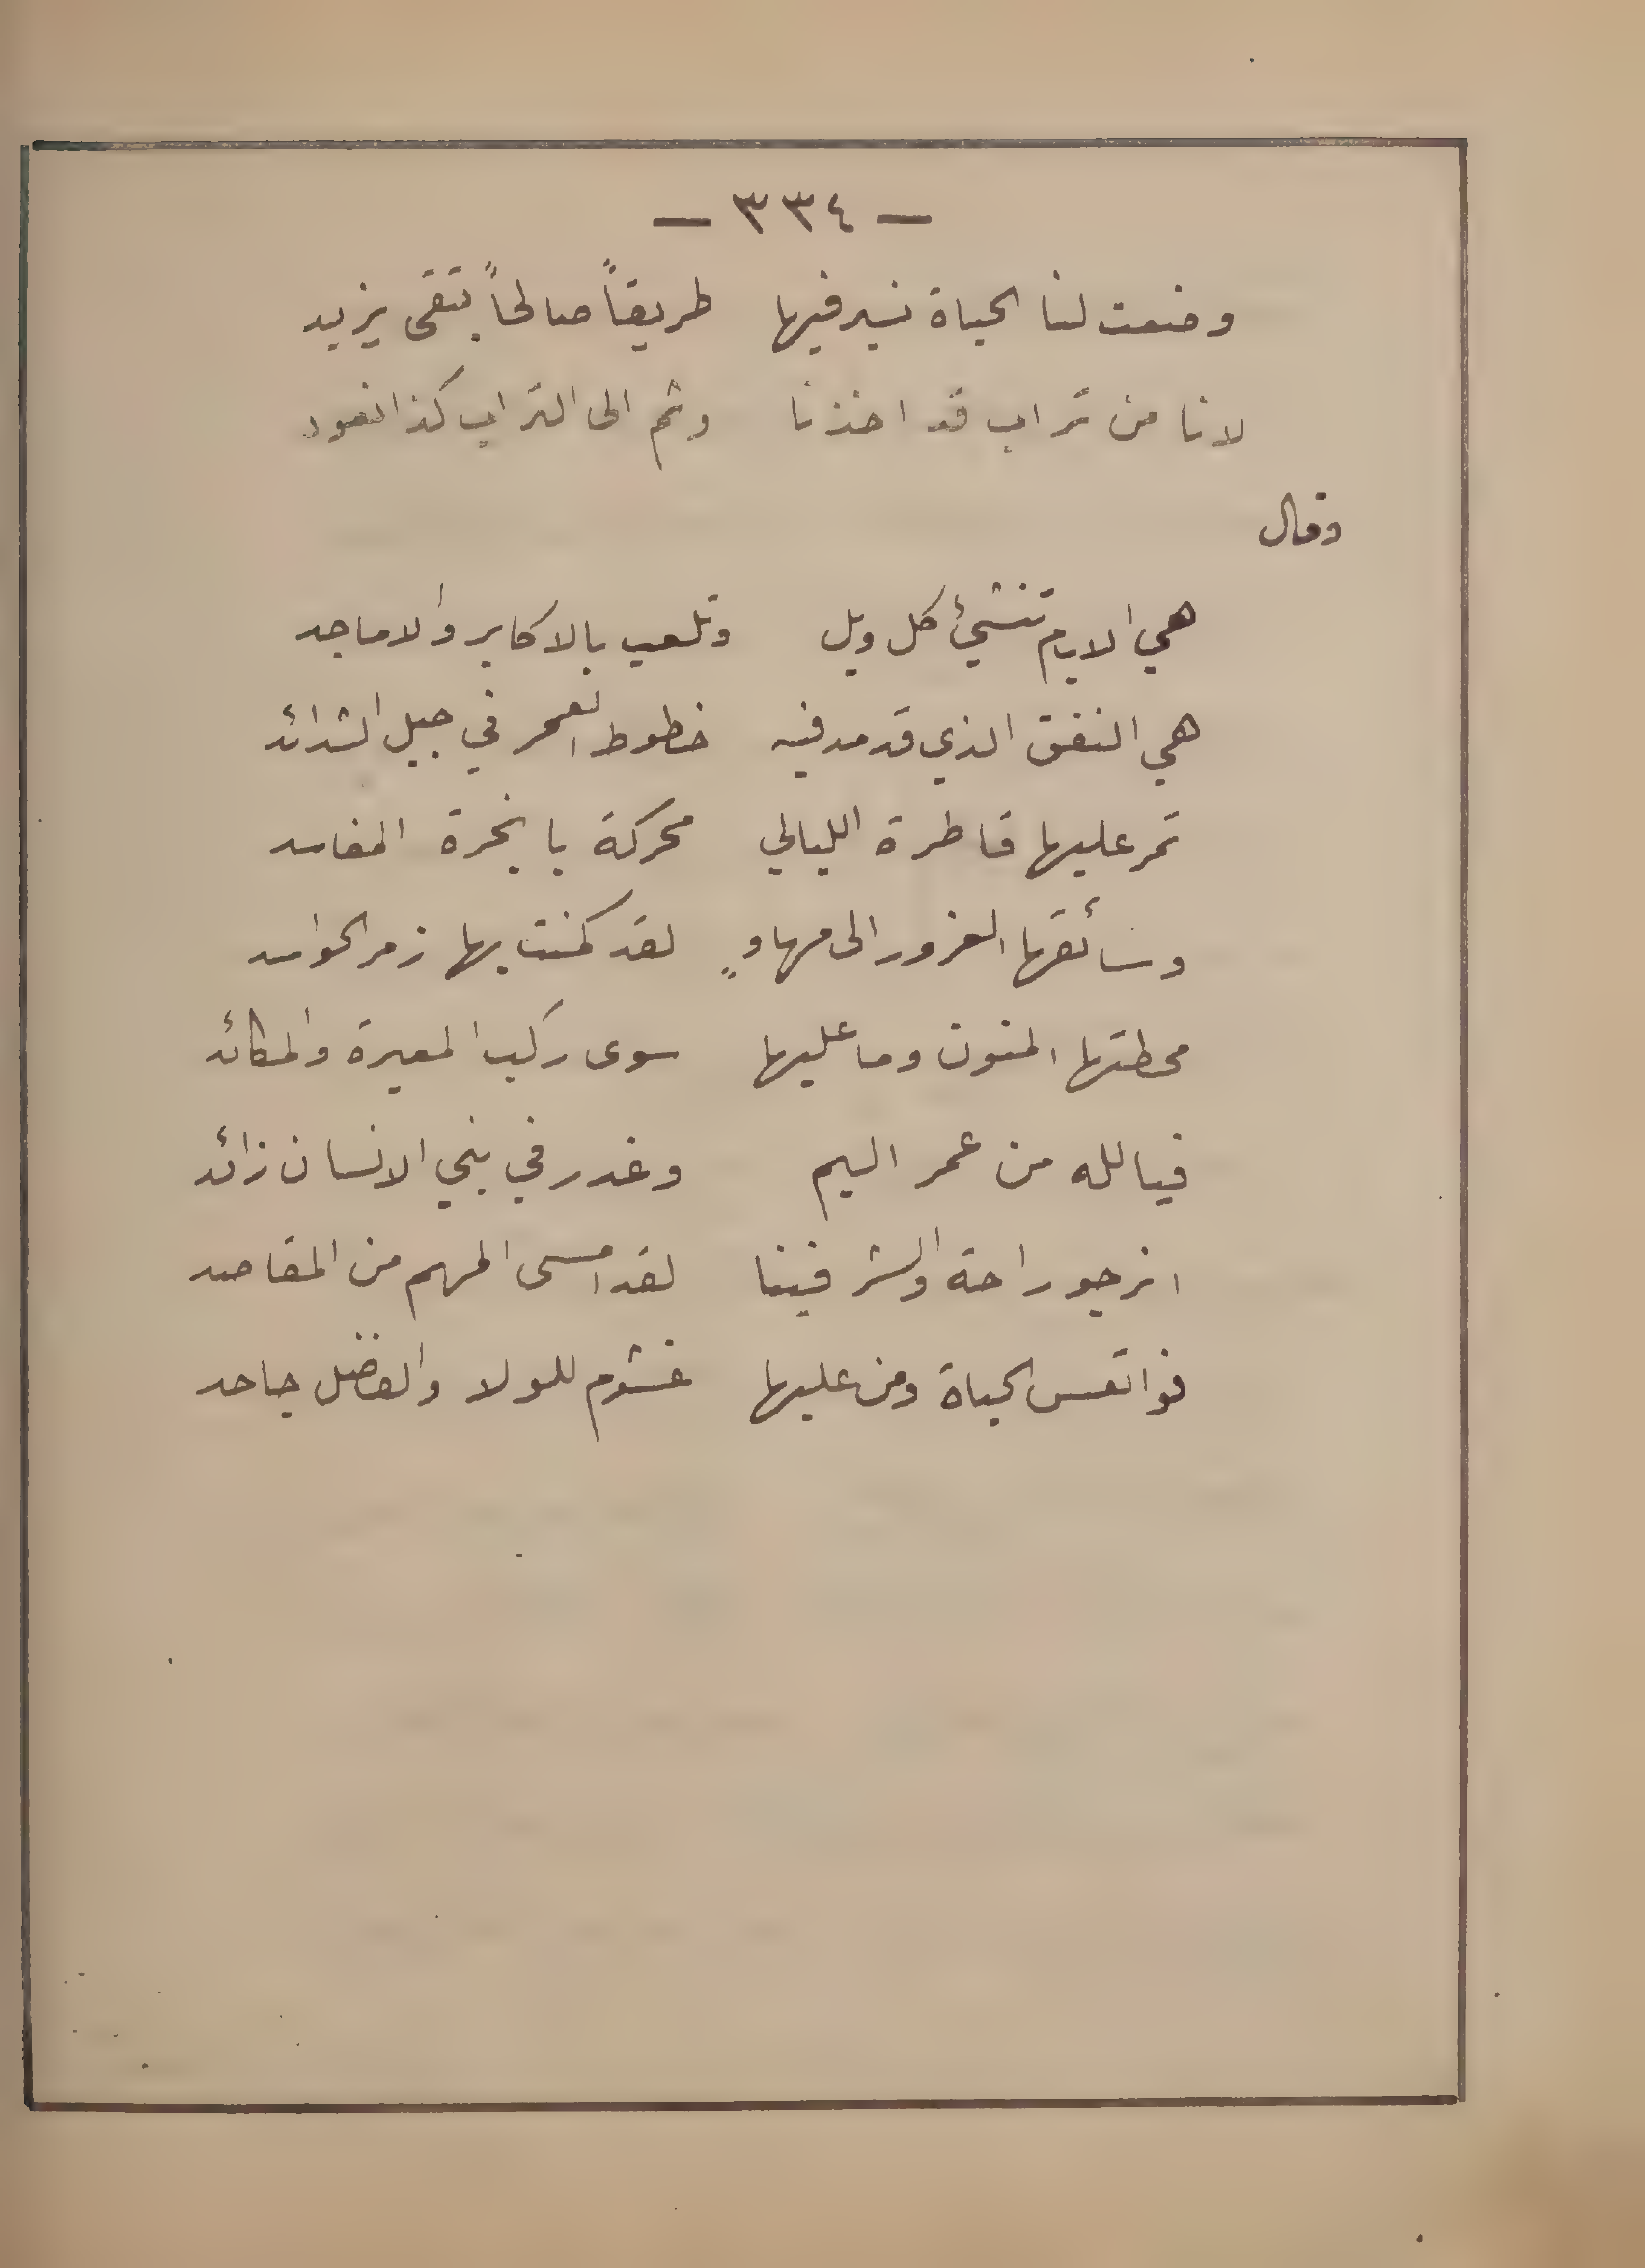 — ٣٣٤ —
وضعت لنا الحياة نسير فيها طريقاً صالحاً بتقى يزيد
لاننا من تراب قد اخذنا وثم الى التراب كذا نعود
وقال
هي الايام تنشئ كل ويل وتلعب بالاكابر والاماجد
هي النفق الذي قد مد فيه خطوط العمر في جبل الشدائد
تمر عليها قاطرة الليالي محركة بابخرة المفاسد
وسائقها الغرور الى مهاوٍ لقد كمنت بها زمر الحواسد
محطتها المنون وما عليها سوى ركب المعيرة والمكائد
فيالله من عمر اليم وغدر في بني الانسان زائد
انرجو راحة والشر فينا لقد امسى المهم من المقاصد
فواتعس الحياة ومن عليها غشوم للولا والفضل جاحد